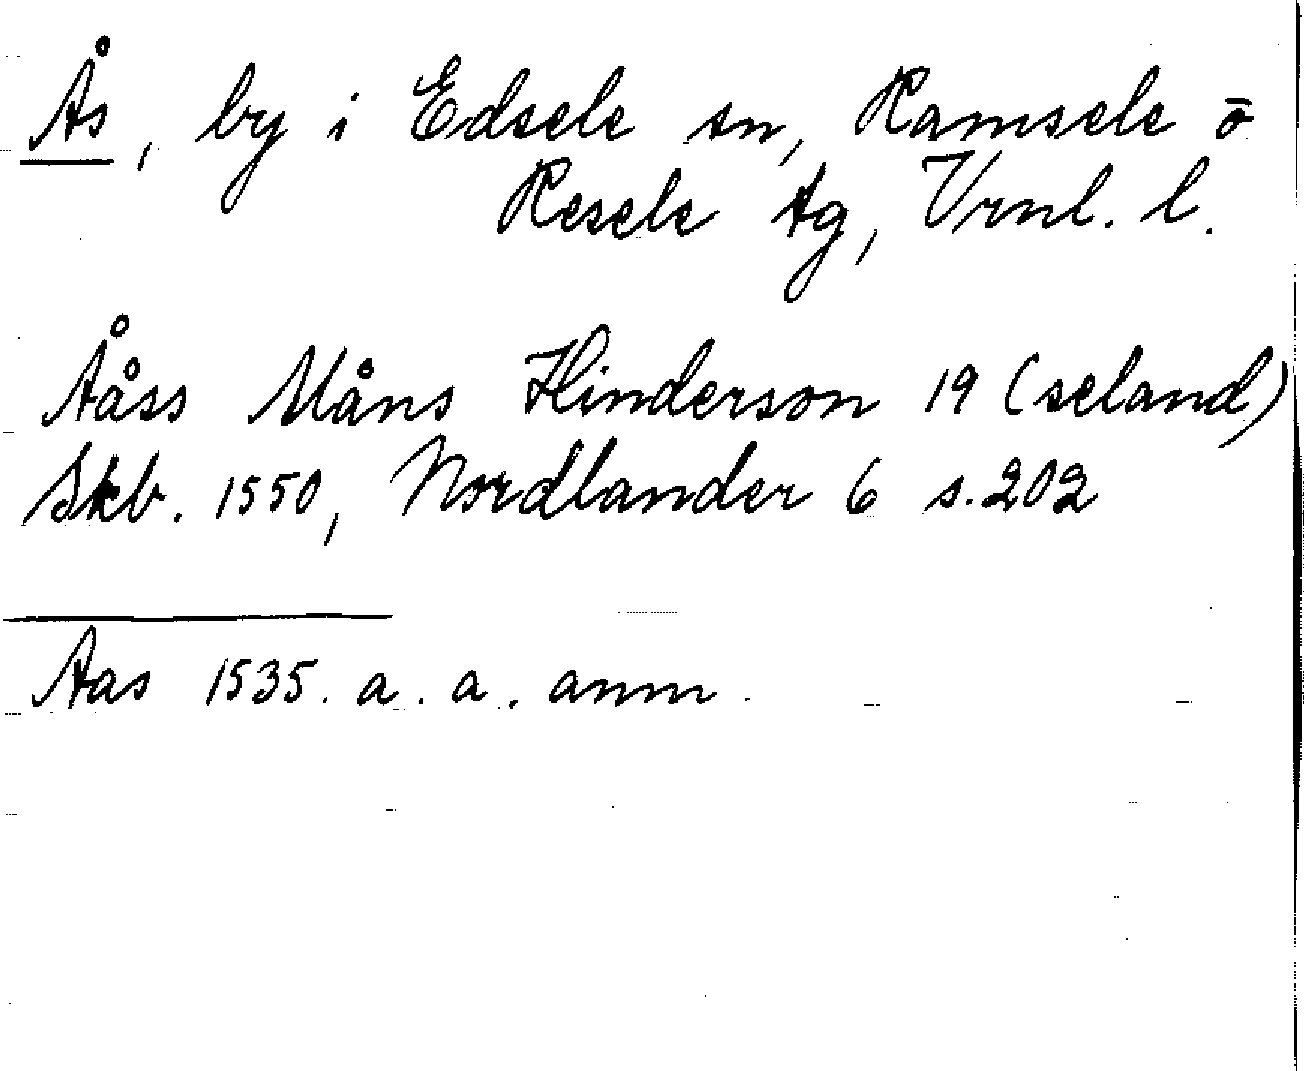 Ås, by i Edsele sn, Ramsele o
Resele tg, Vrnl. l.
Ååss Måns Hinderson 19 (seland)
Skb. 1550, Nordlander 6 s. 202
Aas 1535. a. a. anm.